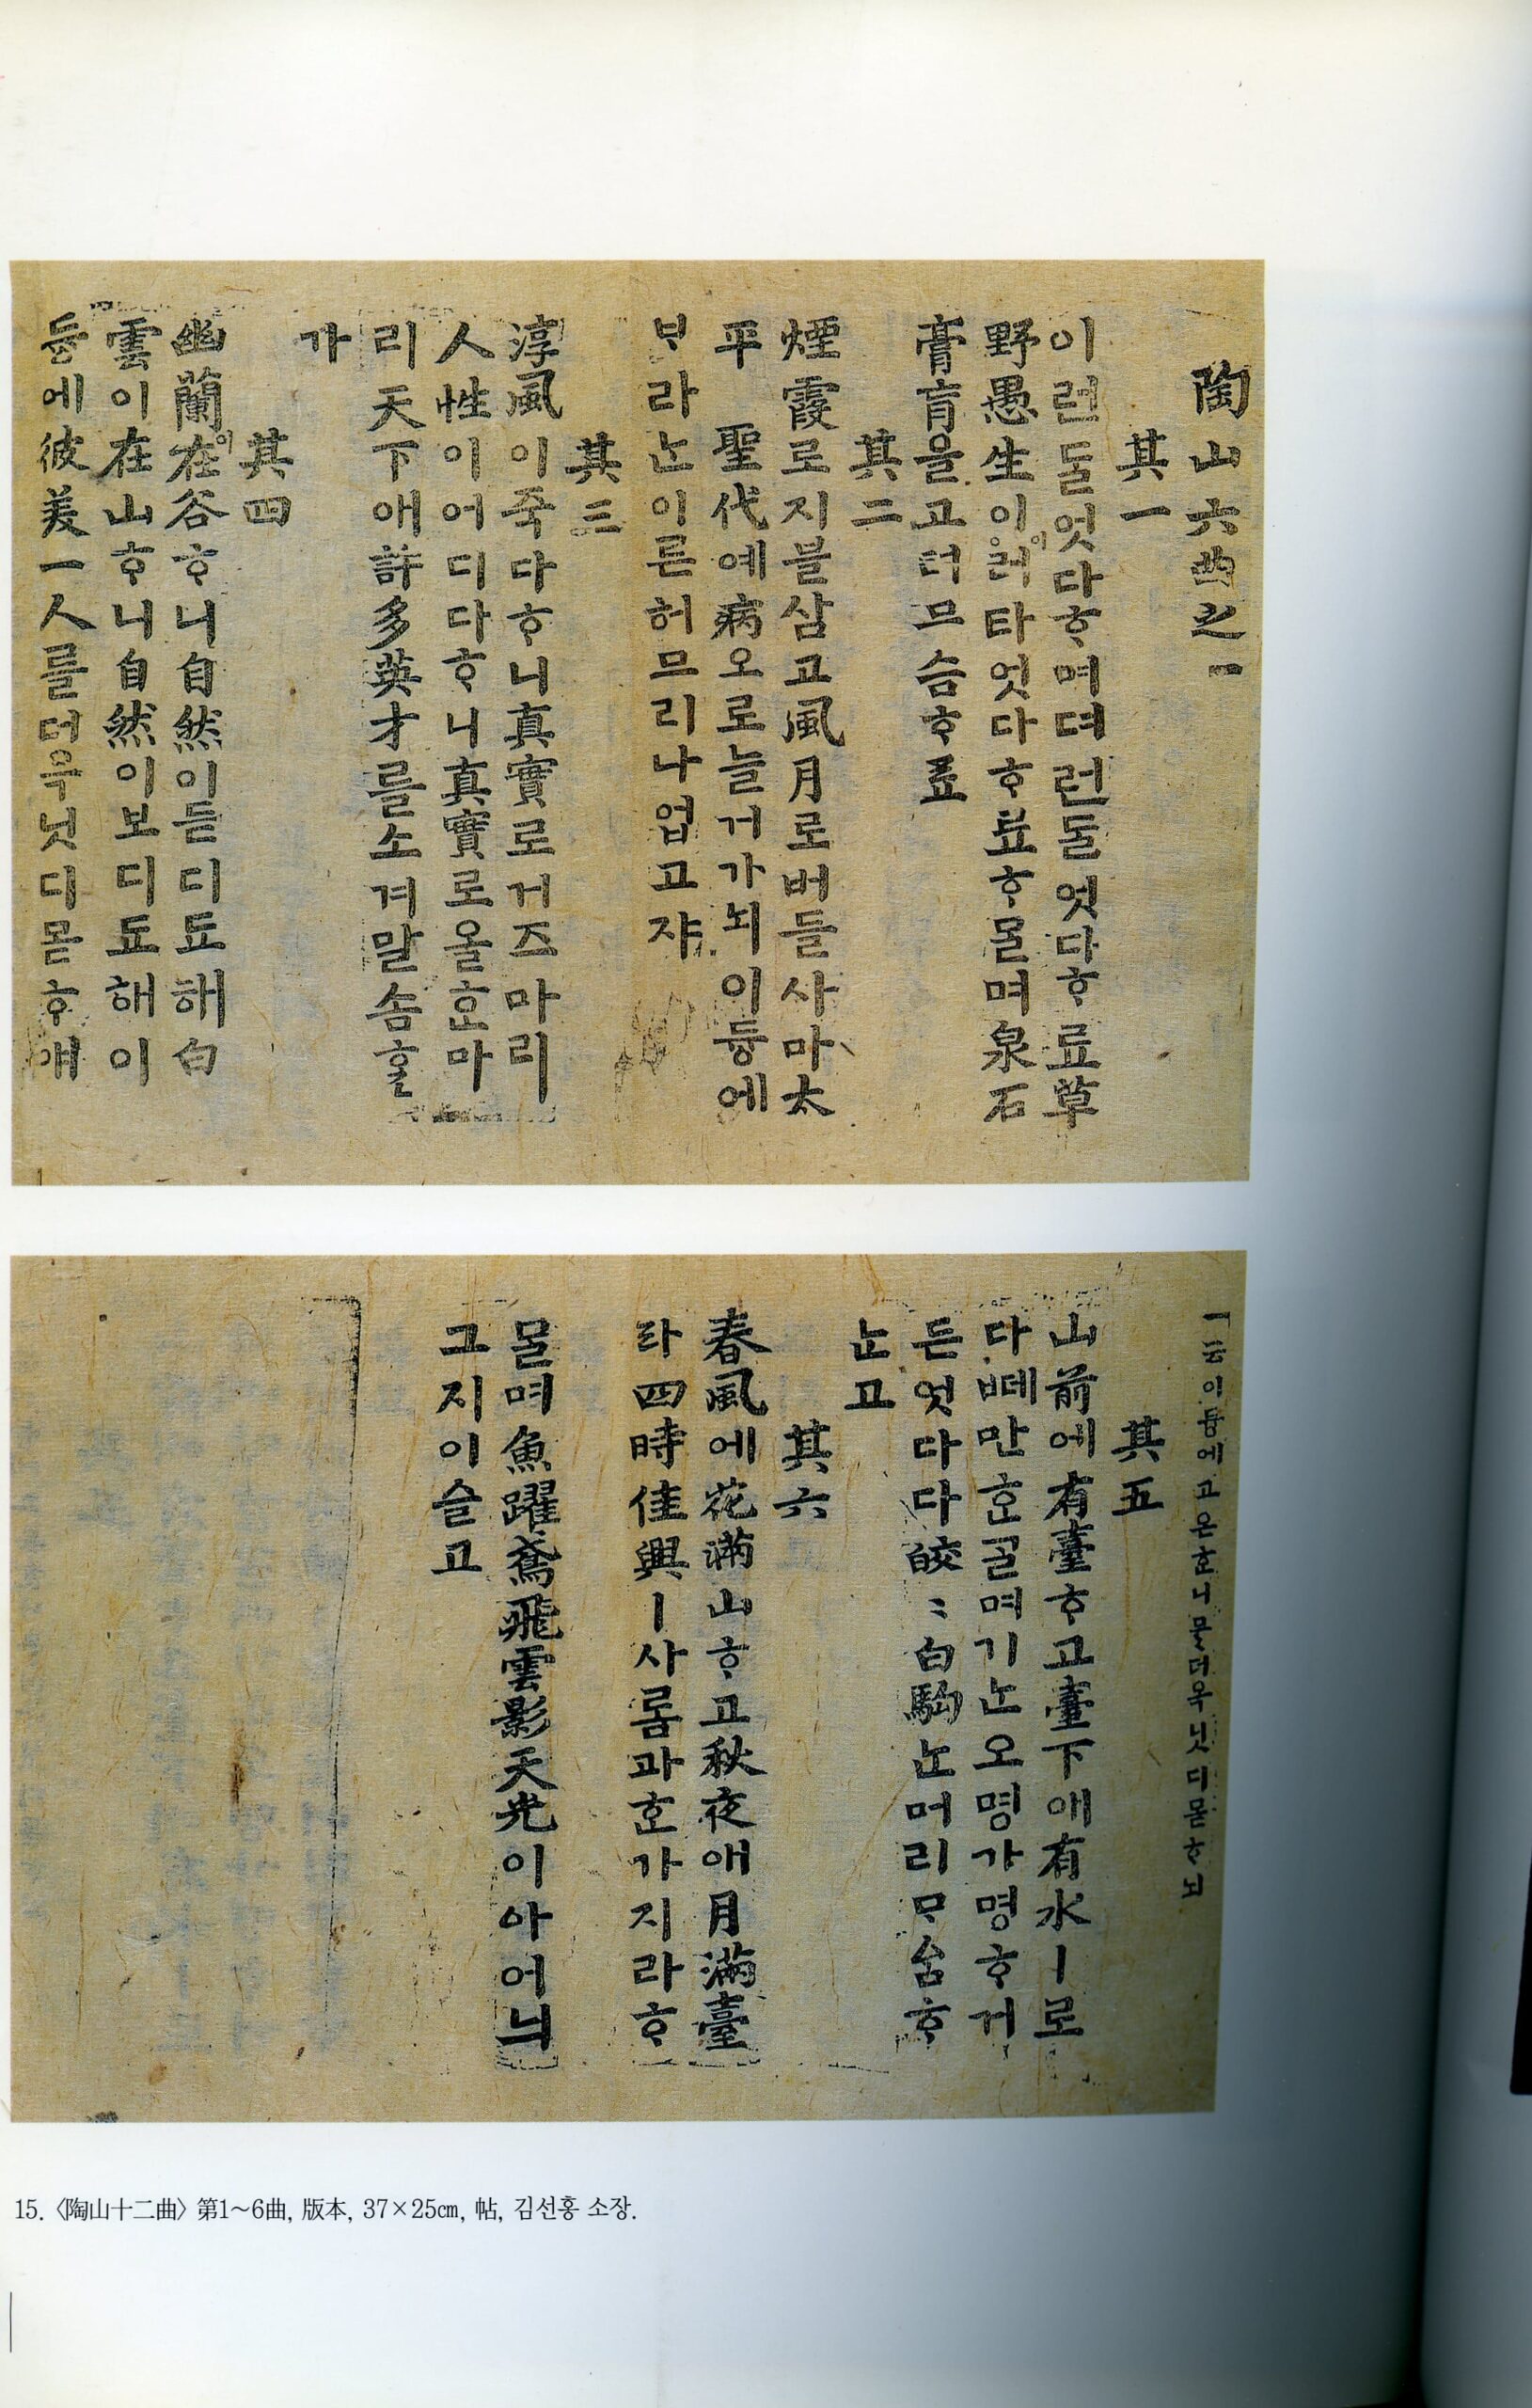 陶山六曲之一
其一
이런ᄃᆞᆯ엇다ᄒᆞ며뎌런ᄃᆞᆯ엇다ᄒᆞ료草
野愚生이이러타엇다ᄒᆞ료ᄒᆞᄆᆞᆯ며泉石
膏肓을고텨므슴ᄒᆞ료
其二
煙霞로지블삼고風月로버들사마太
平聖代예病오로늘거가뇌이듕에
ᄇᆞ라ᄂᆞᆫ이른허므리나업고쟈
其三
淳風이죽다ᄒᆞ니真實로거즈마리
人性이어디다ᄒᆞ니真實로올ᄒᆞᆫ마
리天下애許多英才를소겨말ᄉᆞᆷᄒᆞᆯ
가
其四
幽蘭이在谷ᄒᆞ니自然이듣디됴해白
雲이在山ᄒᆞ니自然이보디됴해이
듕에彼美一人를더욱닛디몯ᄒᆞ얘
一云이듕에고온ᄒᆞ니믈더욱닛디몯ᄒᆞ뇌
其五
山前에有臺ᄒᆞ고臺下애有水ㅣ로
다ᄠᅦ만ᄒᆞᆫᄀᆞᆯ며기ᄂᆞᆫ오명가명ᄒᆞ거
든엇다다皎〻白駒ᄂᆞᆫ머리ᄆᆞᅀᆞᆷᄒᆞ
ᄂᆞᆫ고
其六
春風에花滿山ᄒᆞ고秋夜애月滿臺
라四時佳興ㅣ사ᄅᆞᆷ과ᄒᆞᆫ가지라ᄒᆞ
ᄆᆞᆯ며魚躍鳶飛雲影天光이아어늬
그지이슬고
15. 〈陶山十二曲〉 第1~6曲, 版本, 37×25㎝, 帖, 김선홍 소장.